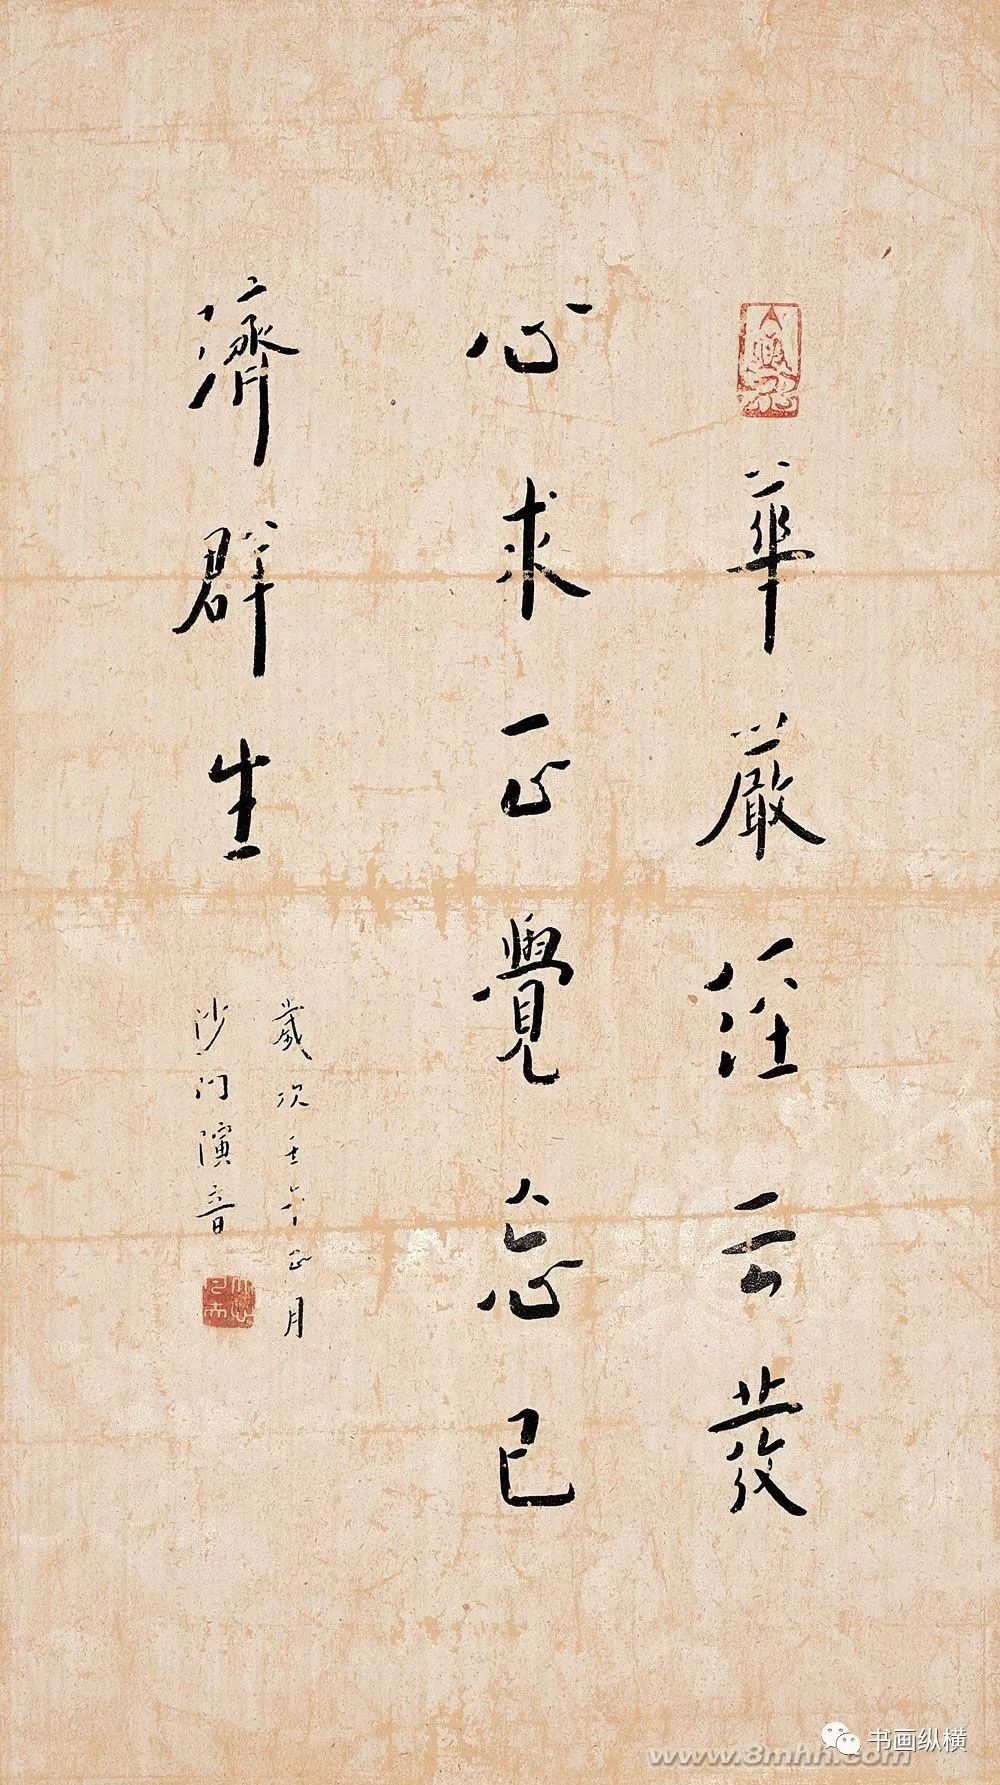 華嚴經云發
心求正覺忘己
濟群生
歲次壬午正月
沙門演音
书画纵横
www.8mhh.com